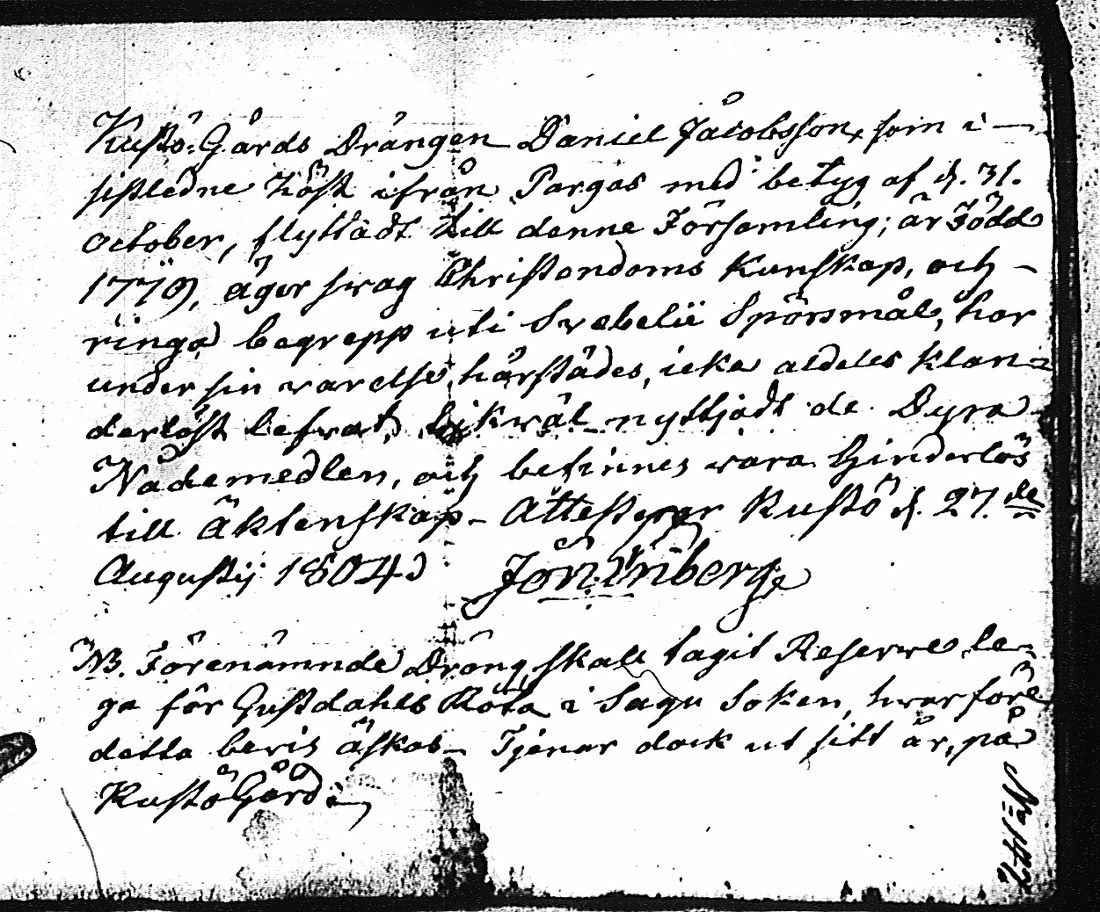 Kustö Gårds Drängen Daniel Jacobsson, som i —
sistledne Höst ifrån Pargas med betyg af d. 31.
October, flyttadt till denne Församling; är Född
1779, äger swag Christendoms Kunskap, och –
ringa begrepp uti Svebelii Spörsmål, har
under sin warelse härstädes, icke aldeles klan=
derlöst lefvat, likwäl nyttjadt de Dyra
Nådemedlen, och befinnes vara hinderlös
till Äktenskap – Attesterar Kustö d. 27.de
Augustij 1804.
NB. Förenämnde Dräng, skall tagit Reserve le=
ga för Gustdahls Rota i Sagu Soken, hvarföre
detta bevis äskas – Tjenar dock ut sitt år, på
Kustö Gård